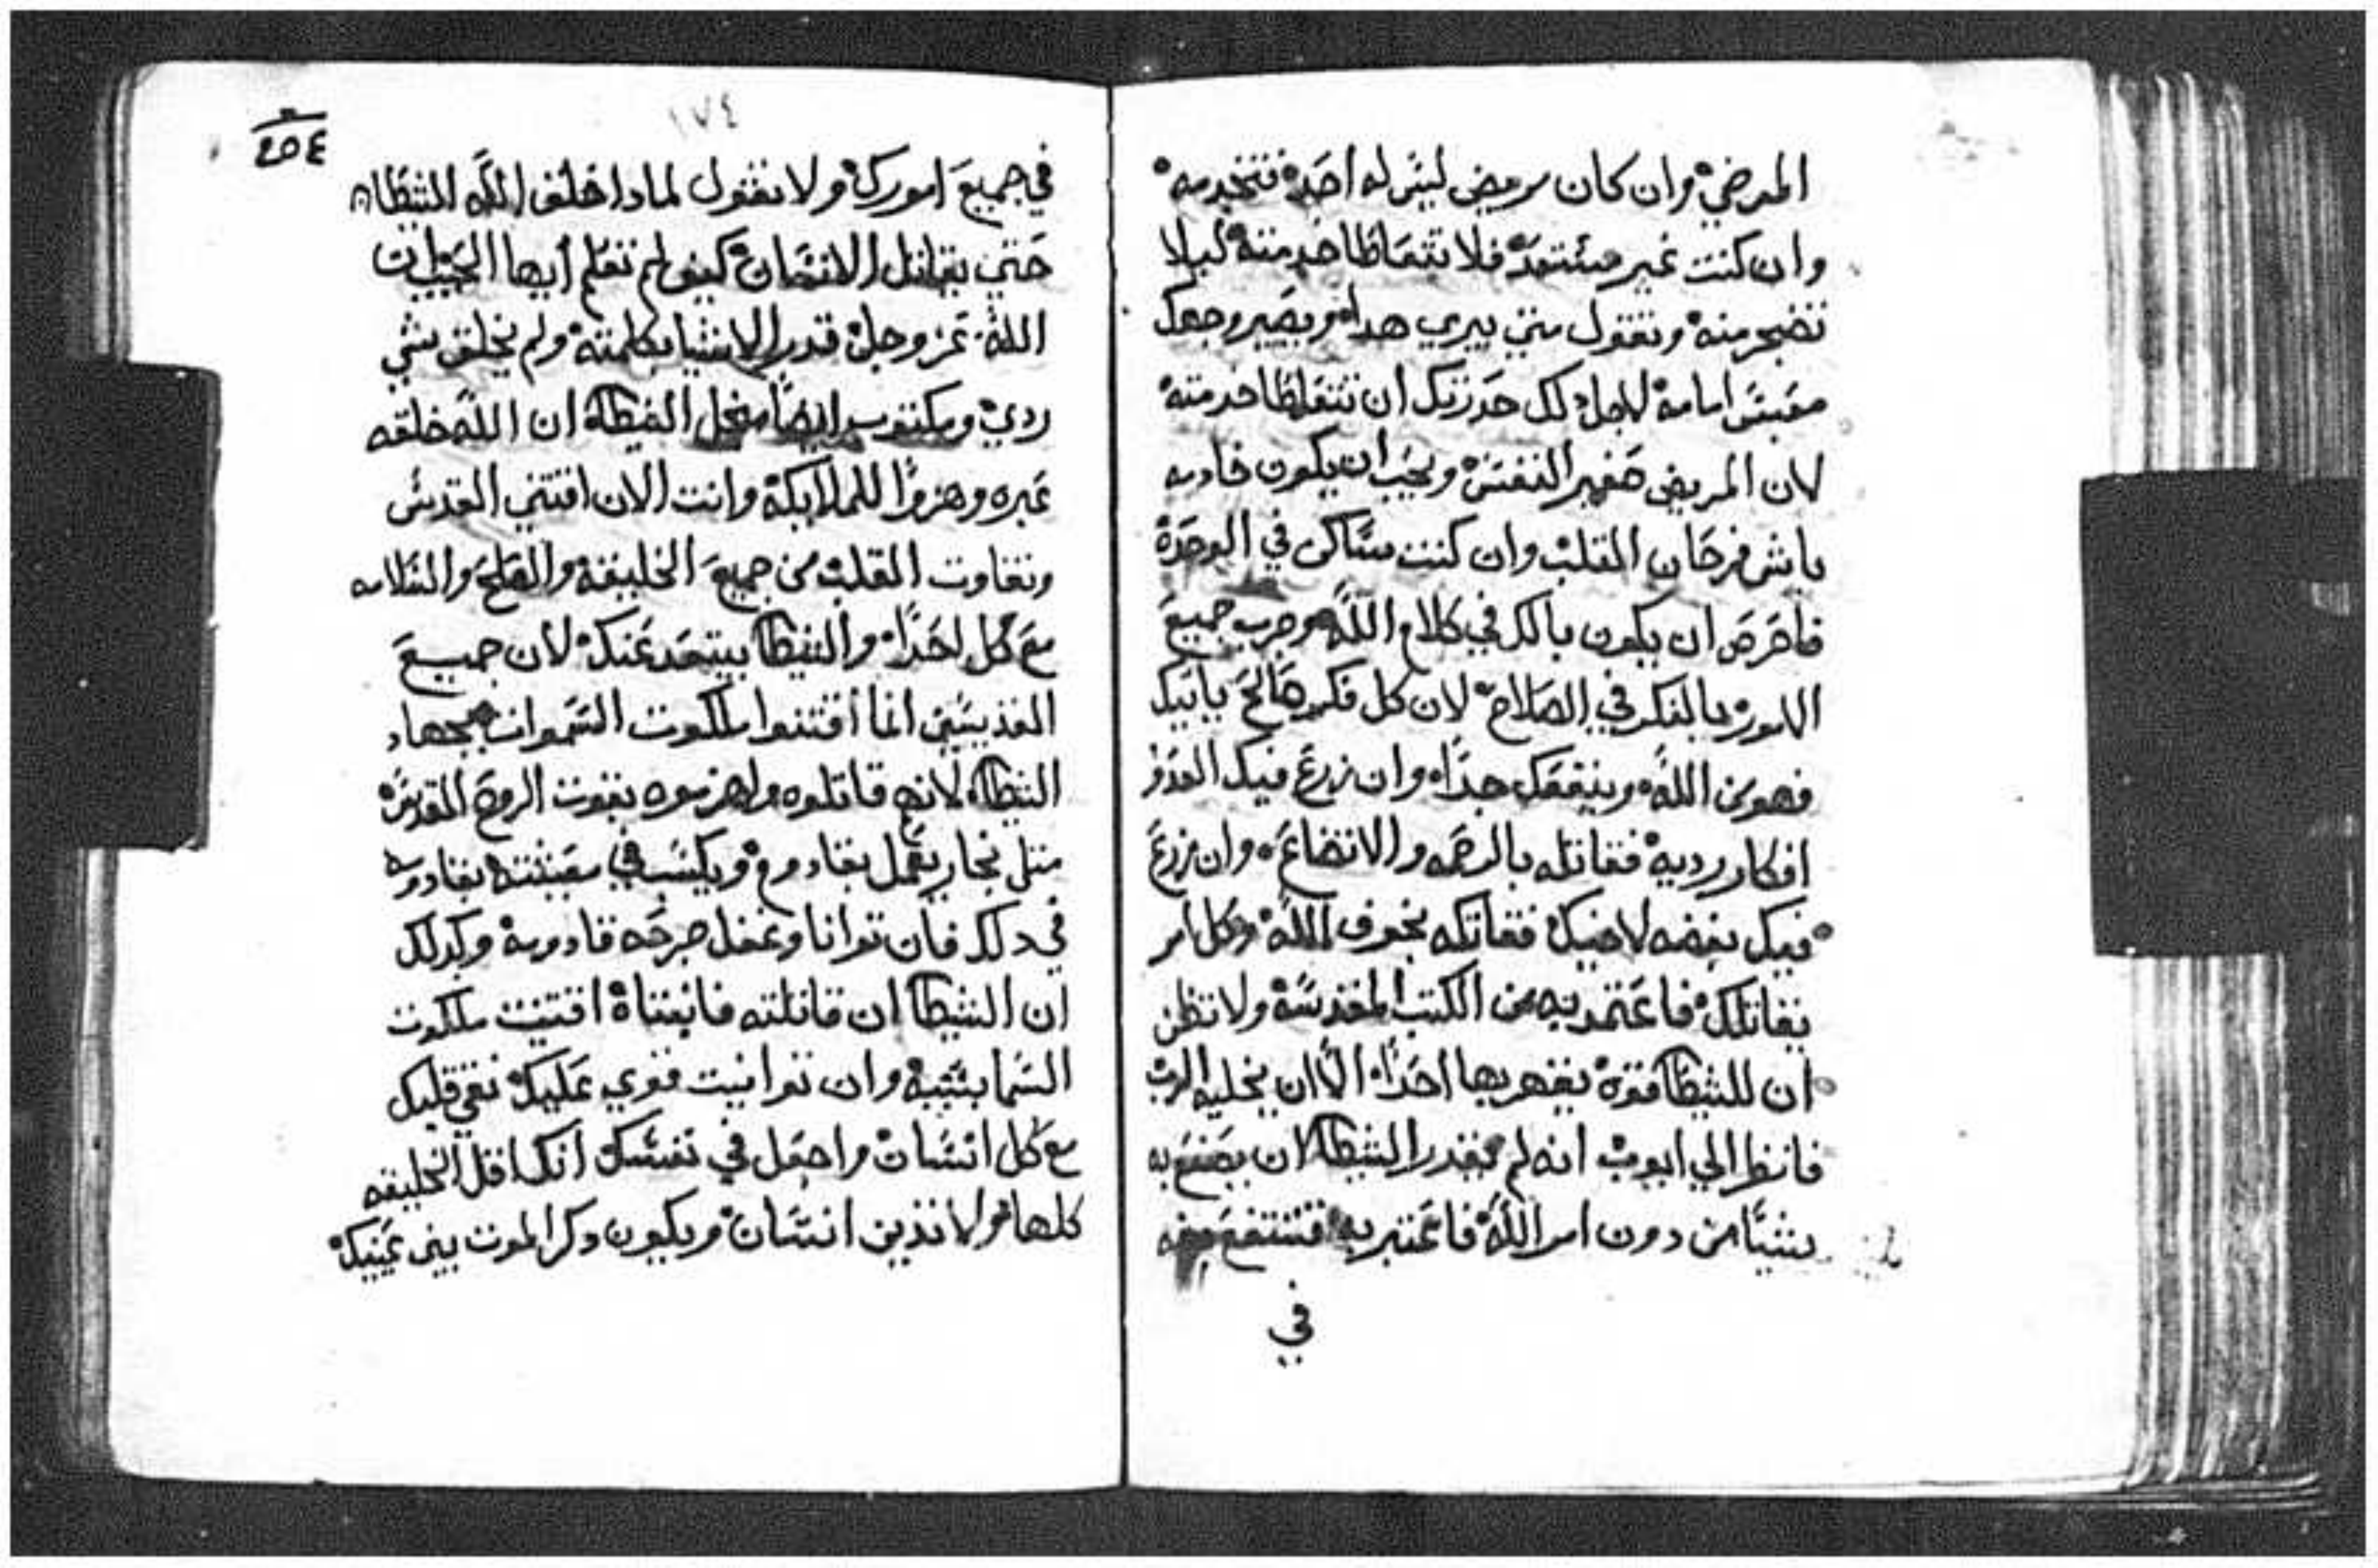 المرضي وان كان مريض ليس له احد فتخدمه
وان كنت غير مستعد فلا تتعاطا خدمته ليلا
تضجر منه وتقول متي يبري هدا ويصير وجهك
معبس امامه لاجل دلك حدرتك ان تتعاطا خدمته
لان المريض صغير النفس ويجب ان يكون خادمه
باش فرحان القلب وان كنت ساكن في الوحدة
فاحرص ان يكون بالك في كلام الله وجرب جميع
الامور بالفكر في الصلاح لان كل فكر صالح ياتيك
فهو من الله وينفعك جداً وان زرع فيك العدو
افكار رديه فقاتله بالرحمه والاتضاع وان زرع
فيك بغضه لاخيك فقاتله بخوف الله وكل امر
يقاتلك فاعتمد به من الكتب المقدسة ولا تظن
ان للشيطا قوة يقهر بها احداً الا ان يخليه الرب
فانظر الي ايوب انه لم يقدر الشيطا ان يصنع به
شياً من دون امر الله فاعتبر به فتنتفع منه
في
١٧٤
٢٥٤
في جميع امورك ولا تقول لمادا خلق الله الشيطان
حتي يقاتل الانسان كيف لم تعلم أيها الحبيب ان
الله عز وجل قدر الاشيا بكلمته ولم يخلق شي
ردي ومكتوب ايضاً من اجل الشيطا ان الله خلقه
عبره وهزوا للملايكة وانت الان اقتني القدس
ونقاوت القلب من جميع الخليقة والصلح والسلامه
مع كل احداً والشيطا يبتعد عنك لان جميع
القديسين انما اقتنوا ملكوت السموات بجهاد
الشيطا لانهم قاتلوه واهزموه بقوت الروح القدس
متل نجار يعمل بقادوم ويكسب في معيشته بقادومه
في دلك فان توانا وغفل جرحه قادومه وكدلك
ان الشيطا ان قاتلته فانعتاه اقتنيت ملكوت
السما بسببه وان توانيت قوي عليك نقي قلبك
مع كل انسان واجعل في نفسك أنك اقل الخليقه
كلها ولا تدين انسان ويكون دكر الموت بين عينيك